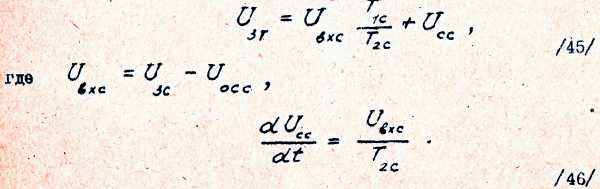 U_зт = U_вхс T_1с/T_2с + U_сс , /45/
где U_вхс = U_зс − U_осс ,
dU_сс/dt = U_вхс/T_2с . /46/